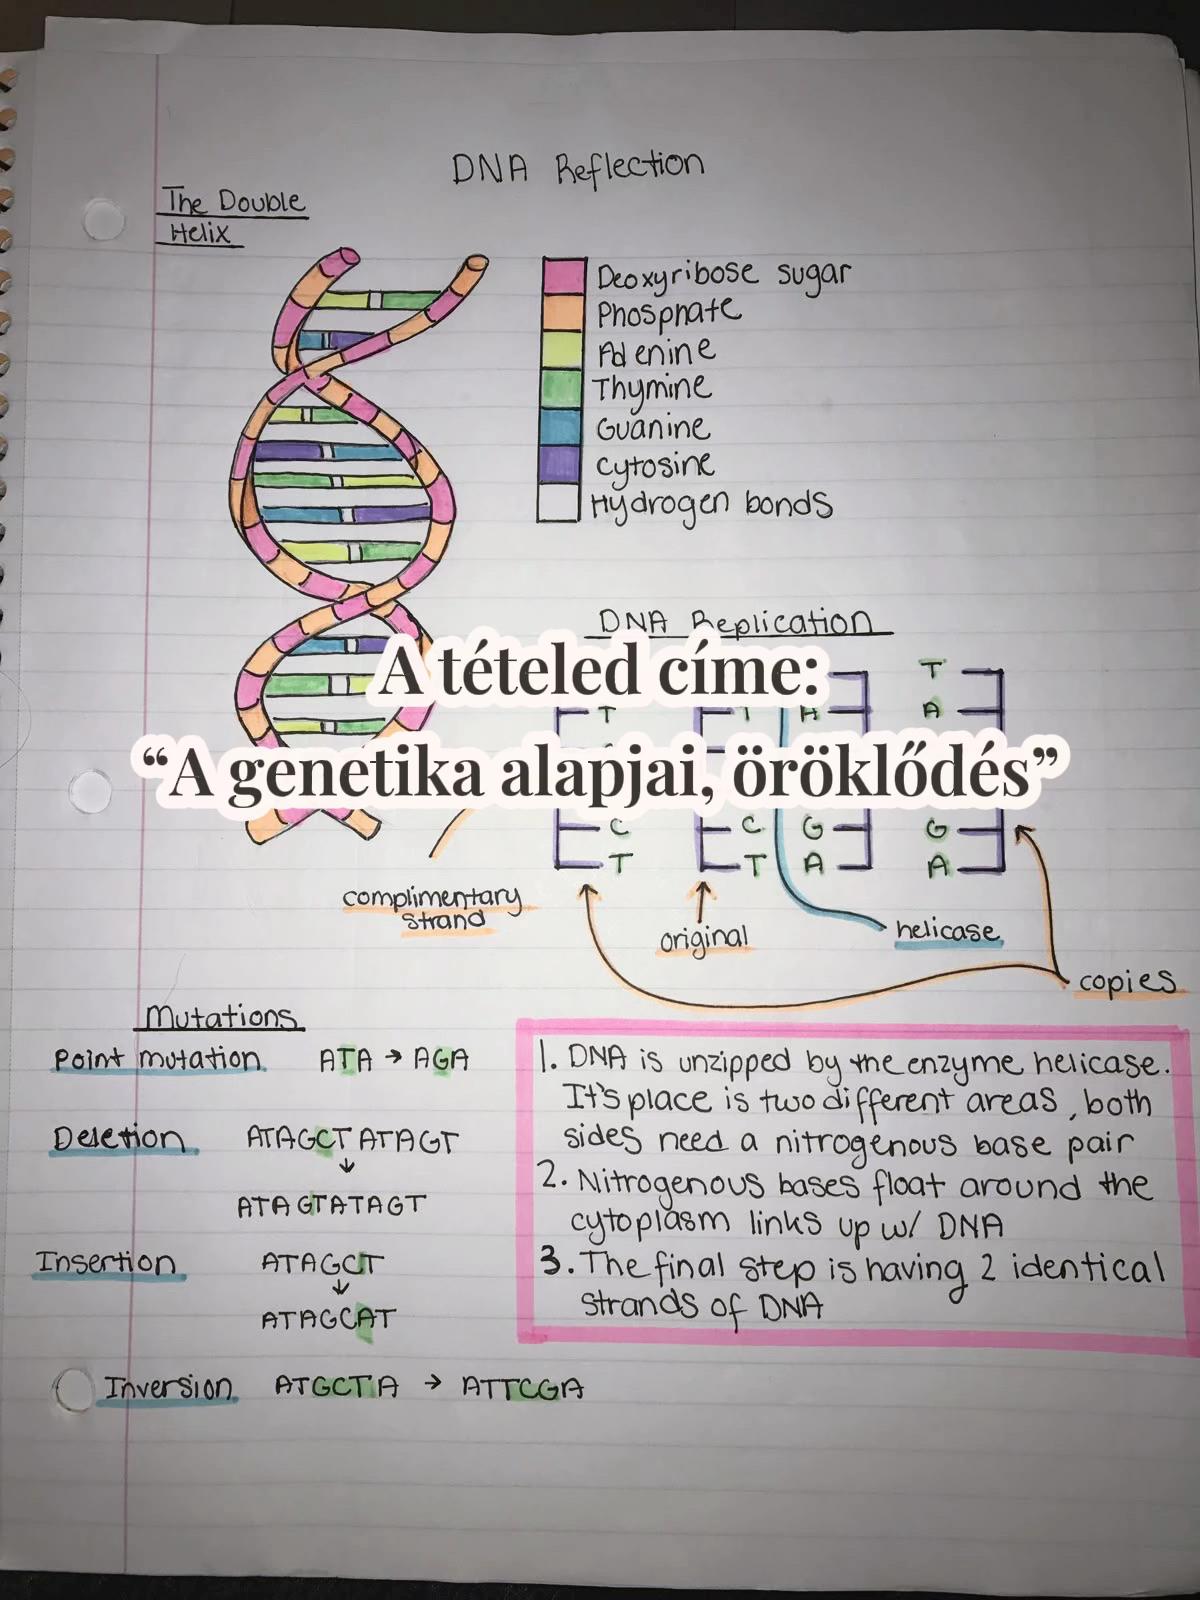 DNA Reflection
The Double
Helix
Deoxyribose sugar
Phosphate
Adenine
Thymine
Guanine
Cytosine
Hydrogen bonds
DNA Replication
A tételed címe:
“A genetika alapjai, öröklődés”
T
A
T
T
A
C
C
G
G
T
T
A
A
complimentary
strand
original
helicase
copies
Mutations
Point mutation ATA → AGA
Deletion ATAGCTATAGT
↓
ATAGTATAGT
Insertion ATAGCT
↓
ATAGCAT
Inversion ATGCTA → ATTCGA
1. DNA is unzipped by the enzyme helicase.
It's place is two different areas, both
sides need a nitrogenous base pair
2. Nitrogenous bases float around the
cytoplasm links up w/ DNA
3. The final step is having 2 identical
strands of DNA